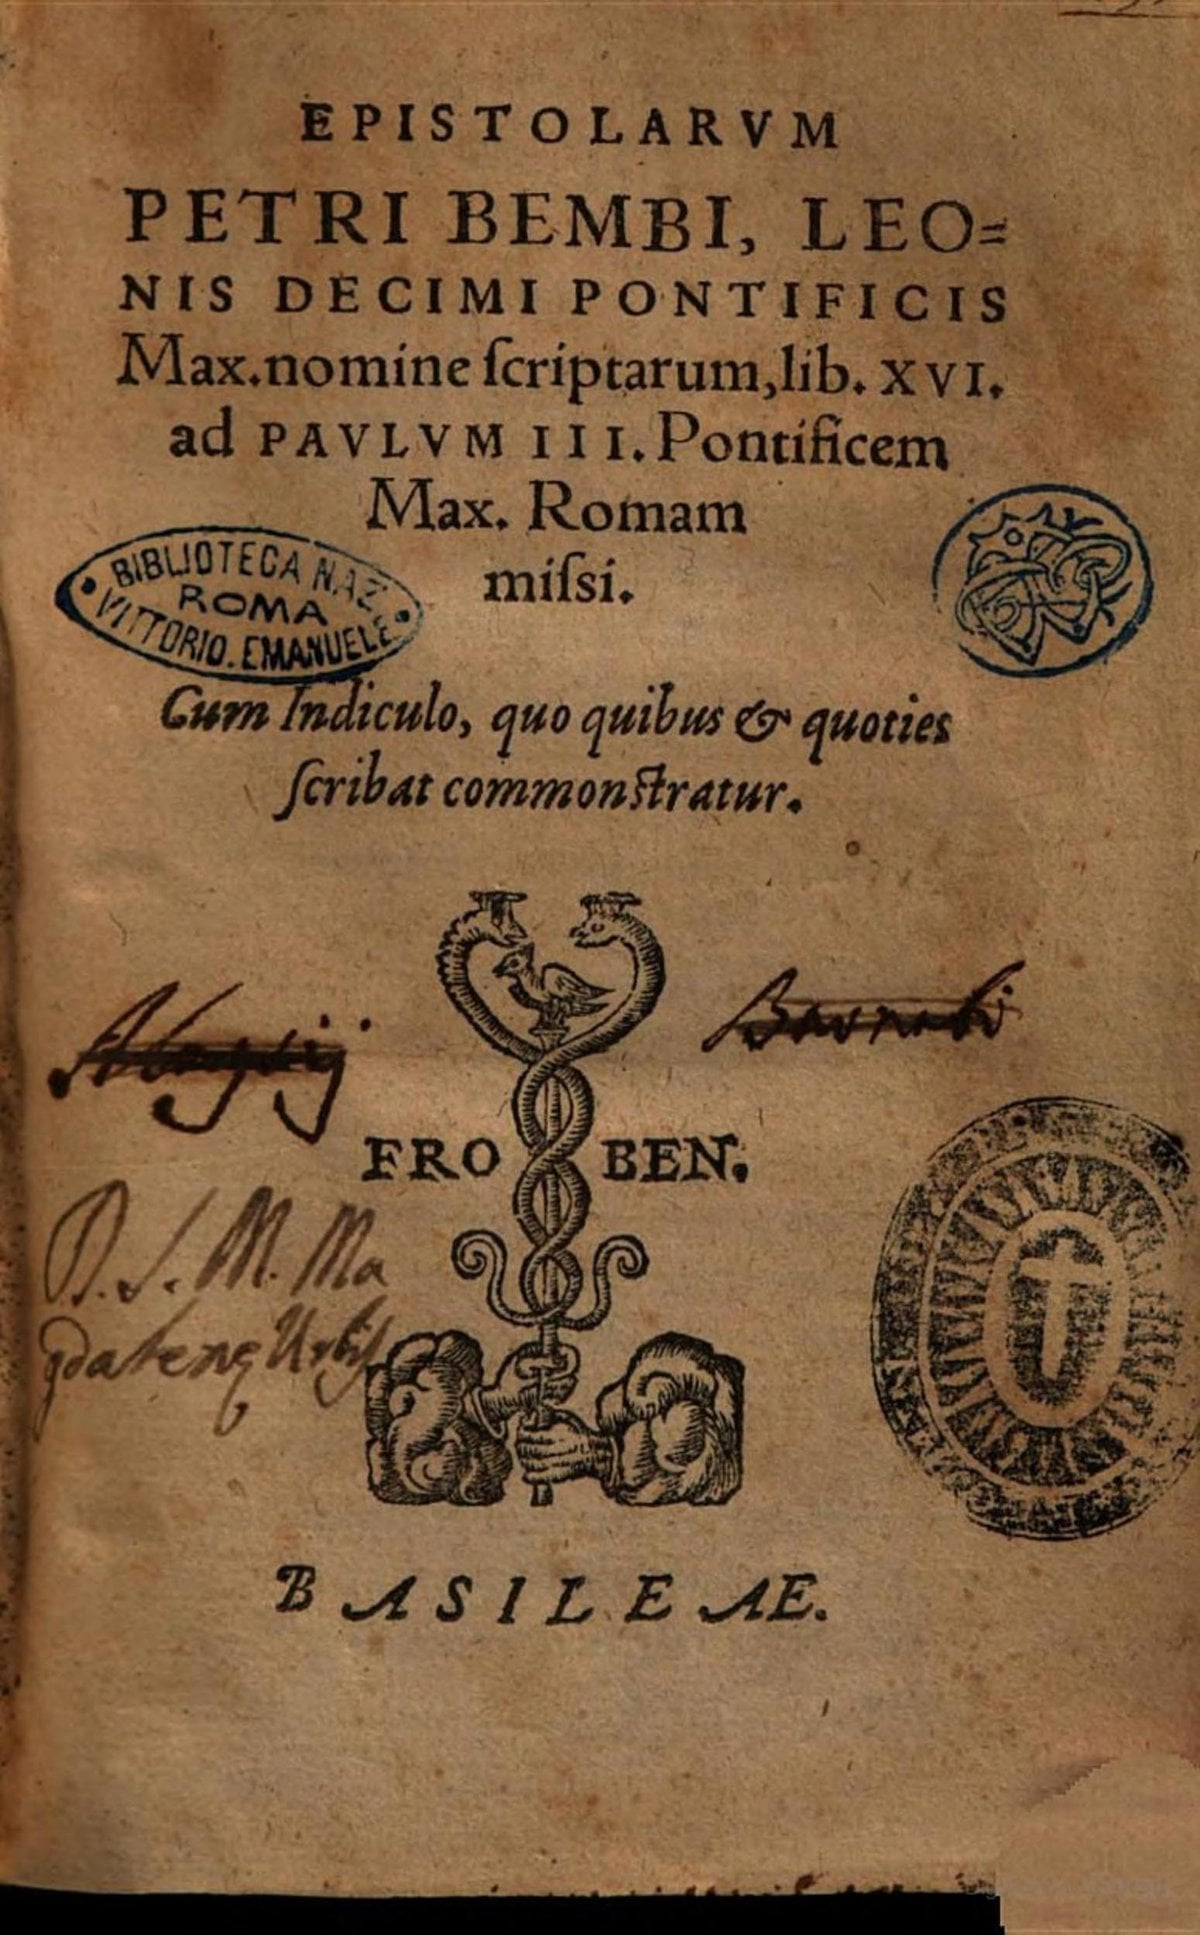 EPISTOLARVM
PETRI BEMBI, LEO=
NIS DECIMI PONTIFICIS
Max. nomine ſcriptarum, lib. XVI.
ad PAVLVM III. Pontificem
Max. Romam
miſsi.
BIBLIOTECA NAZ.
ROMA
VITTORIO. EMANUELE
Cum Indiculo, quo quibus & quoties
ſcribat commonſtratur.
Aloysij
FRO BEN.
D. S. M. Ma
BASILEAE.